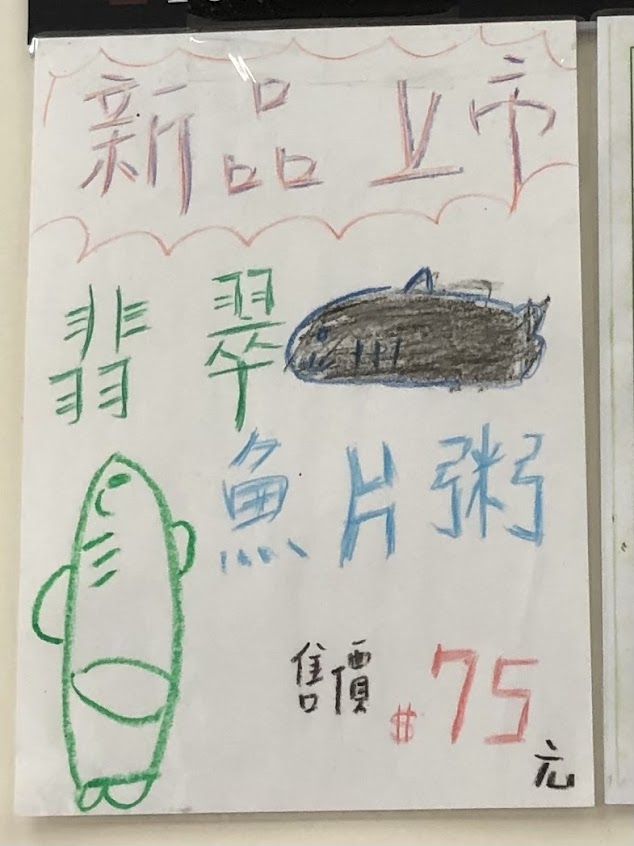 新品上市
翡翠
魚片粥
售價$75元